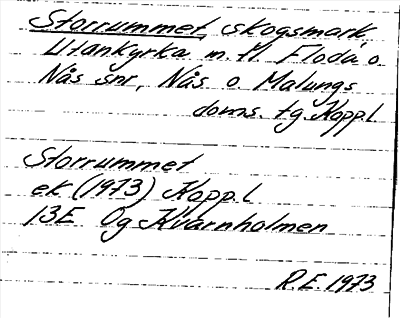 Storrummet, skogsmark,
Utankyrka m. fl. Floda o.
Nås snr, Nås o. Malungs
doms. tg. Kopp.l
Storrummet
ek (1973) Kopp.l
13E 0g Kvarnholmen
R.E. 1973